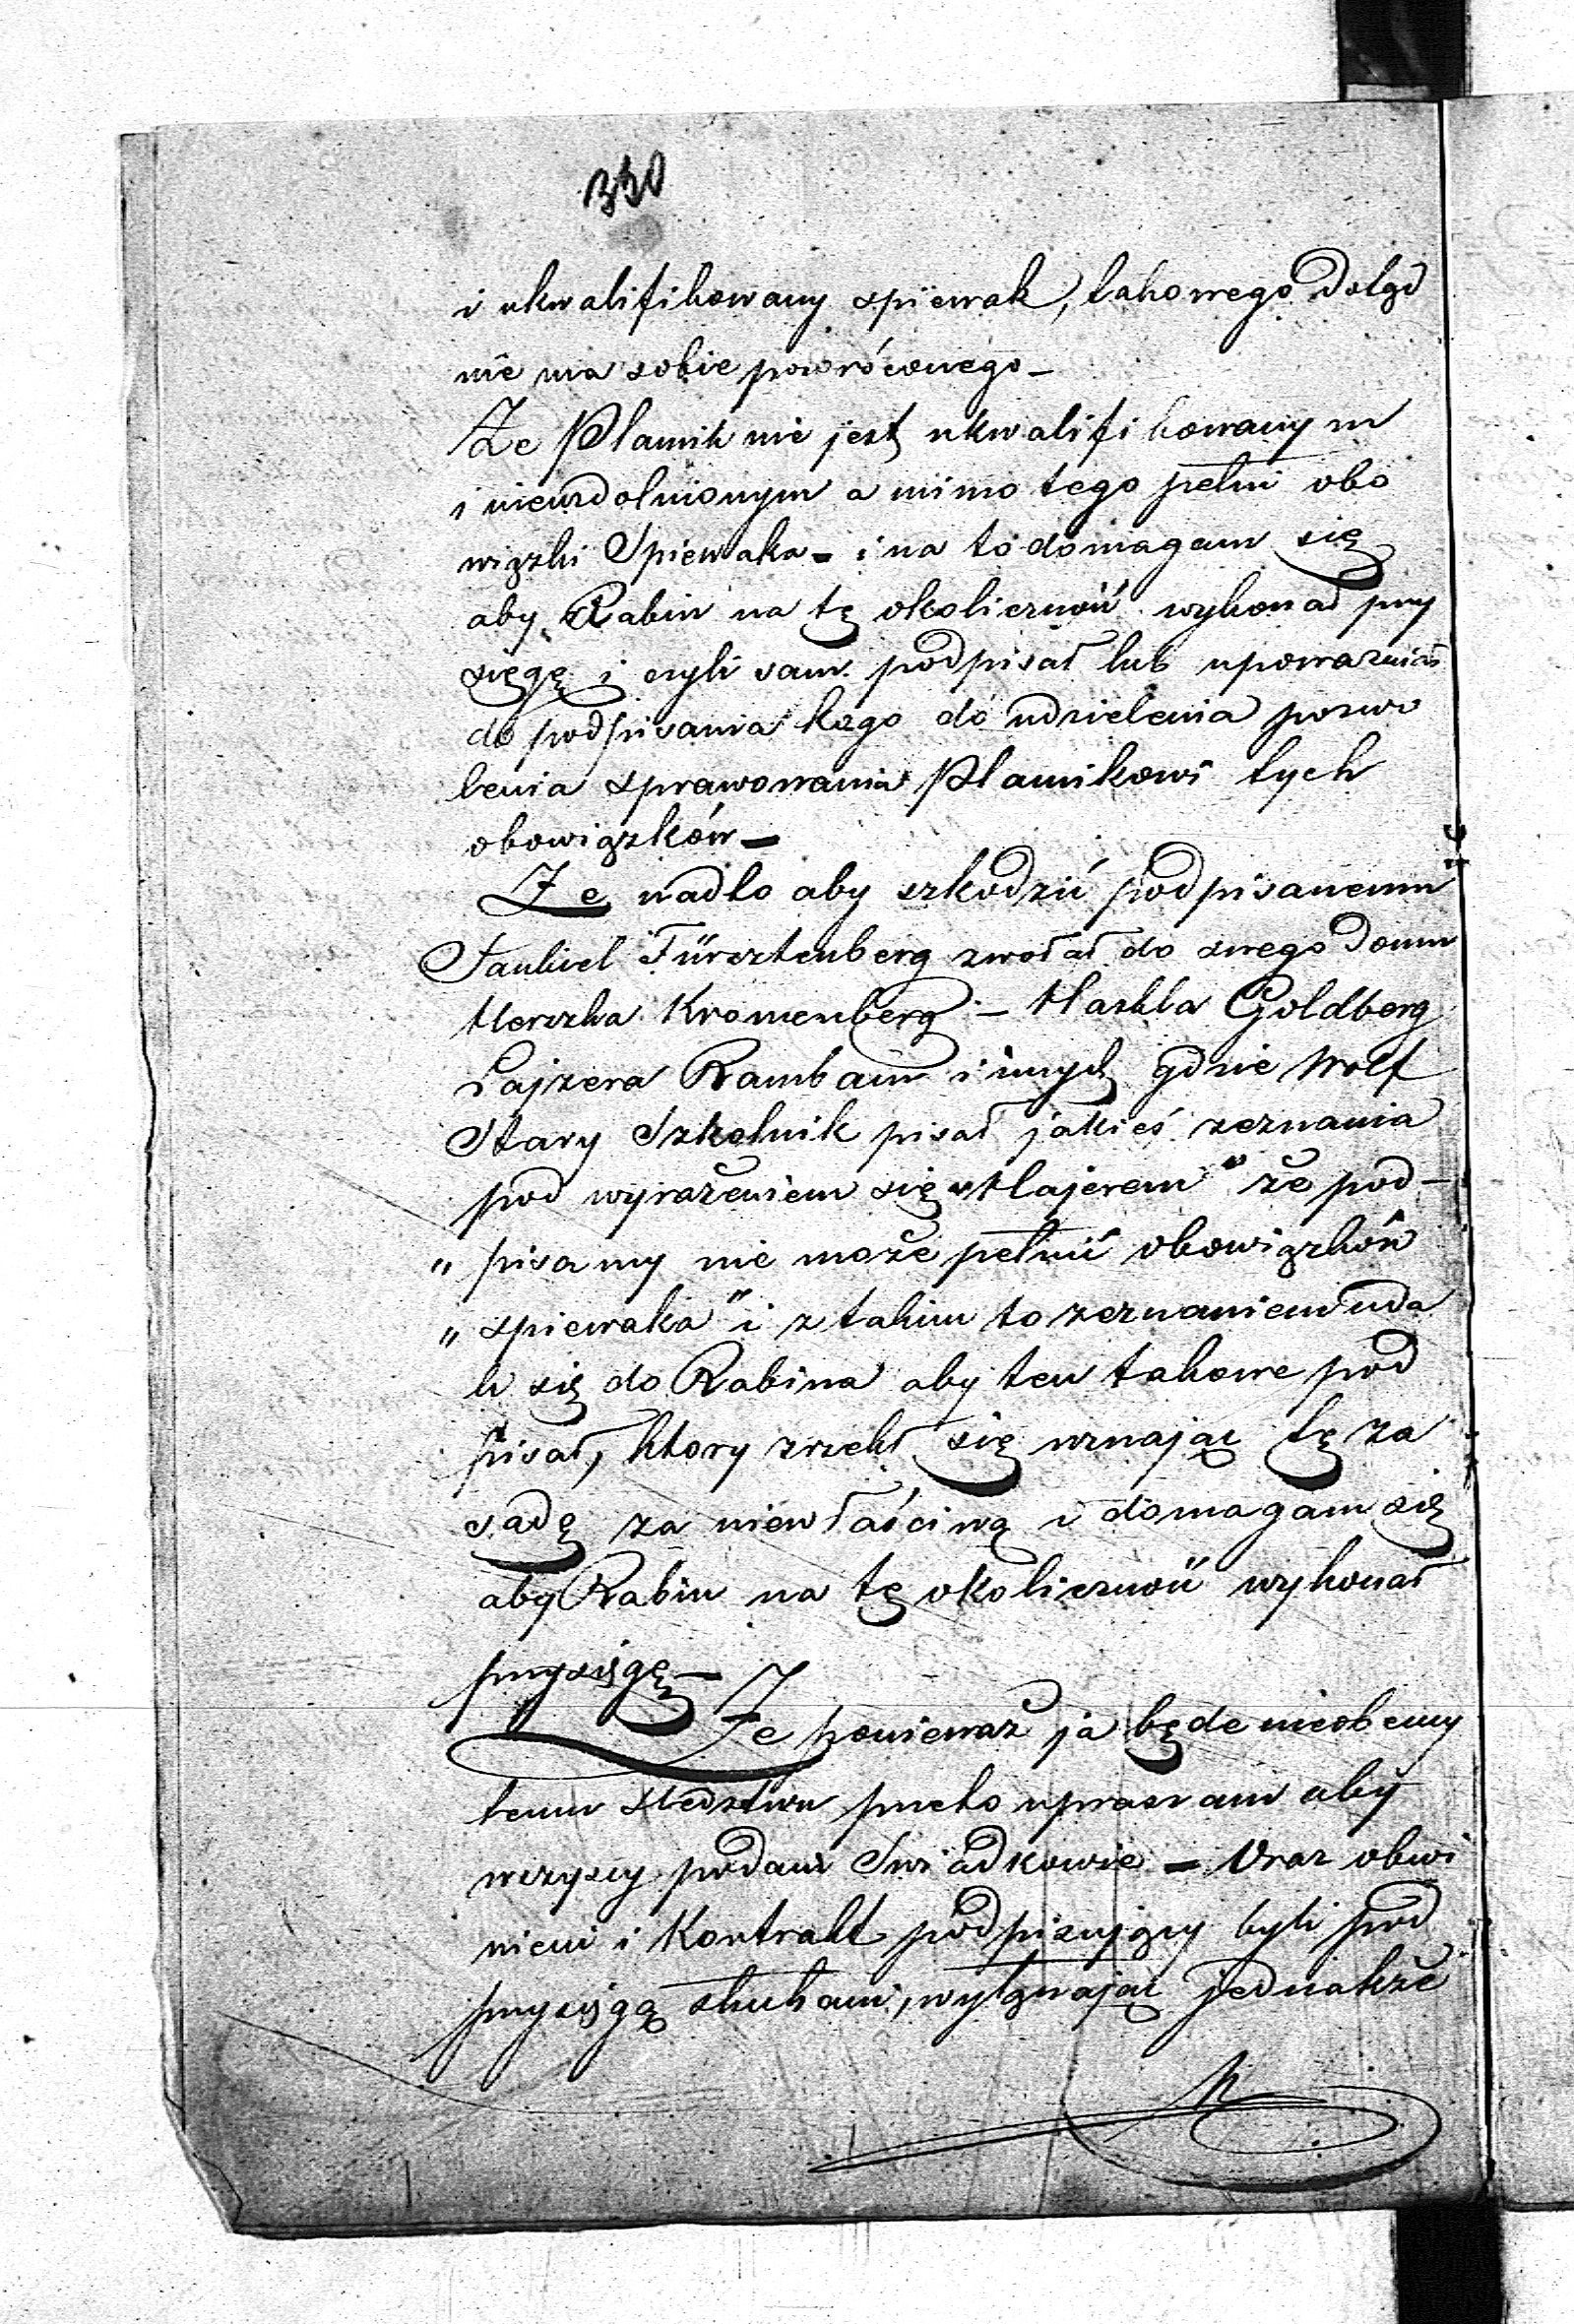 330
i ukwalifikowany spiewak, takowego dotąd
nie ma sobie powróconego –
Że Plamik nie jest ukwalifikowanym
i nieuzdolnionym a mimo tego pełni obo
wiązki Spiewaka – i na to domagam się
aby Rabin na tę okoliczność wykonał przy
sięgę i czyli sam podpisał lub upoważnił
do podpisania kogo do udzielenia pozwo
lenia sprawowania Plamikowi tych
obowiązków –
Że nadto aby szkodzić podpisanemu
Jankiel Fürsztenberg zwołał do swego domu
Herszka Kronenberg – Haskla Goldberg
Lajzera Rambam i innych gdzie Wolf
Stary Szkolnik pisał jakieś zeznania
pod wyrażeniem się „Hajerem" że pod –
„ pisany nie może pełnić obowiązków
„ spiewaka" i z takim to zeznaniem uda
li się do Rabina aby ten takowe pod
pisał, ktory zrzekł się uznając tę za
sadę za niewłaściwą i domagam się
aby Rabin na tę okoliczność wykonał
przysięgę –
Że ponieważ ja będe nieobecny
temu sledztwu przeto upraszam aby
wszyscy podani Swiadkowie – Oraz obwi
nieni i Kontrakt podpisujący byli pod
przysięgą słuchani, wyłączając jednakże